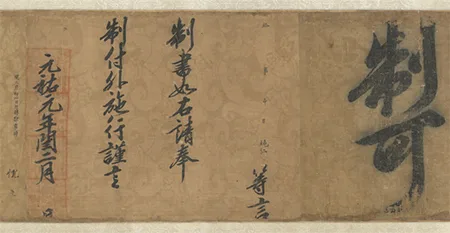 制可
等言
制書如右請奉
制付外施行謹言
元祐元年閏二月 日